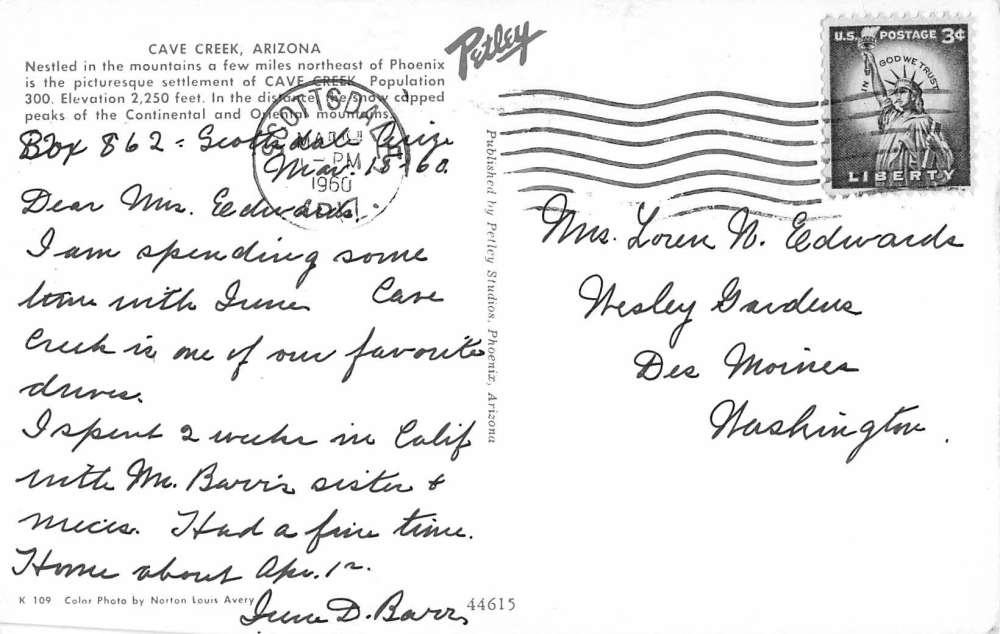 CAVE CREEK, ARIZONA
Nestled in the mountains a few miles northeast of Phoenix
is the picturesque settlement of CAVE CREEK. Population
300. Elevation 2,250 feet. In the distance, the snow capped
peaks of the Continental and Oriental mountains.
Petley
U.S. POSTAGE 3¢
IN GOD WE TRUST
LIBERTY
SCOTTSDALE
MAR
- PM
1960
ARIZ.
Box 862 - Scottsdale Ariz
Mar. 18-60.
Dear Mrs. Edwards.
I am spending some
time with Irene Cave
Creek is one of our favorite
drives.
I spent 2 weeks in Calif
with Mr. Barr's sister &
nieces. Had a fine time.
Home about Apr. 1st.
Irene D. Barr
Published by Petley Studios, Phoenix, Arizona
Mrs. Loren N. Edwards
Wesley Gardens
Des Moines
Washington.
K 109 Color Photo by Norton Louis Avery
44615